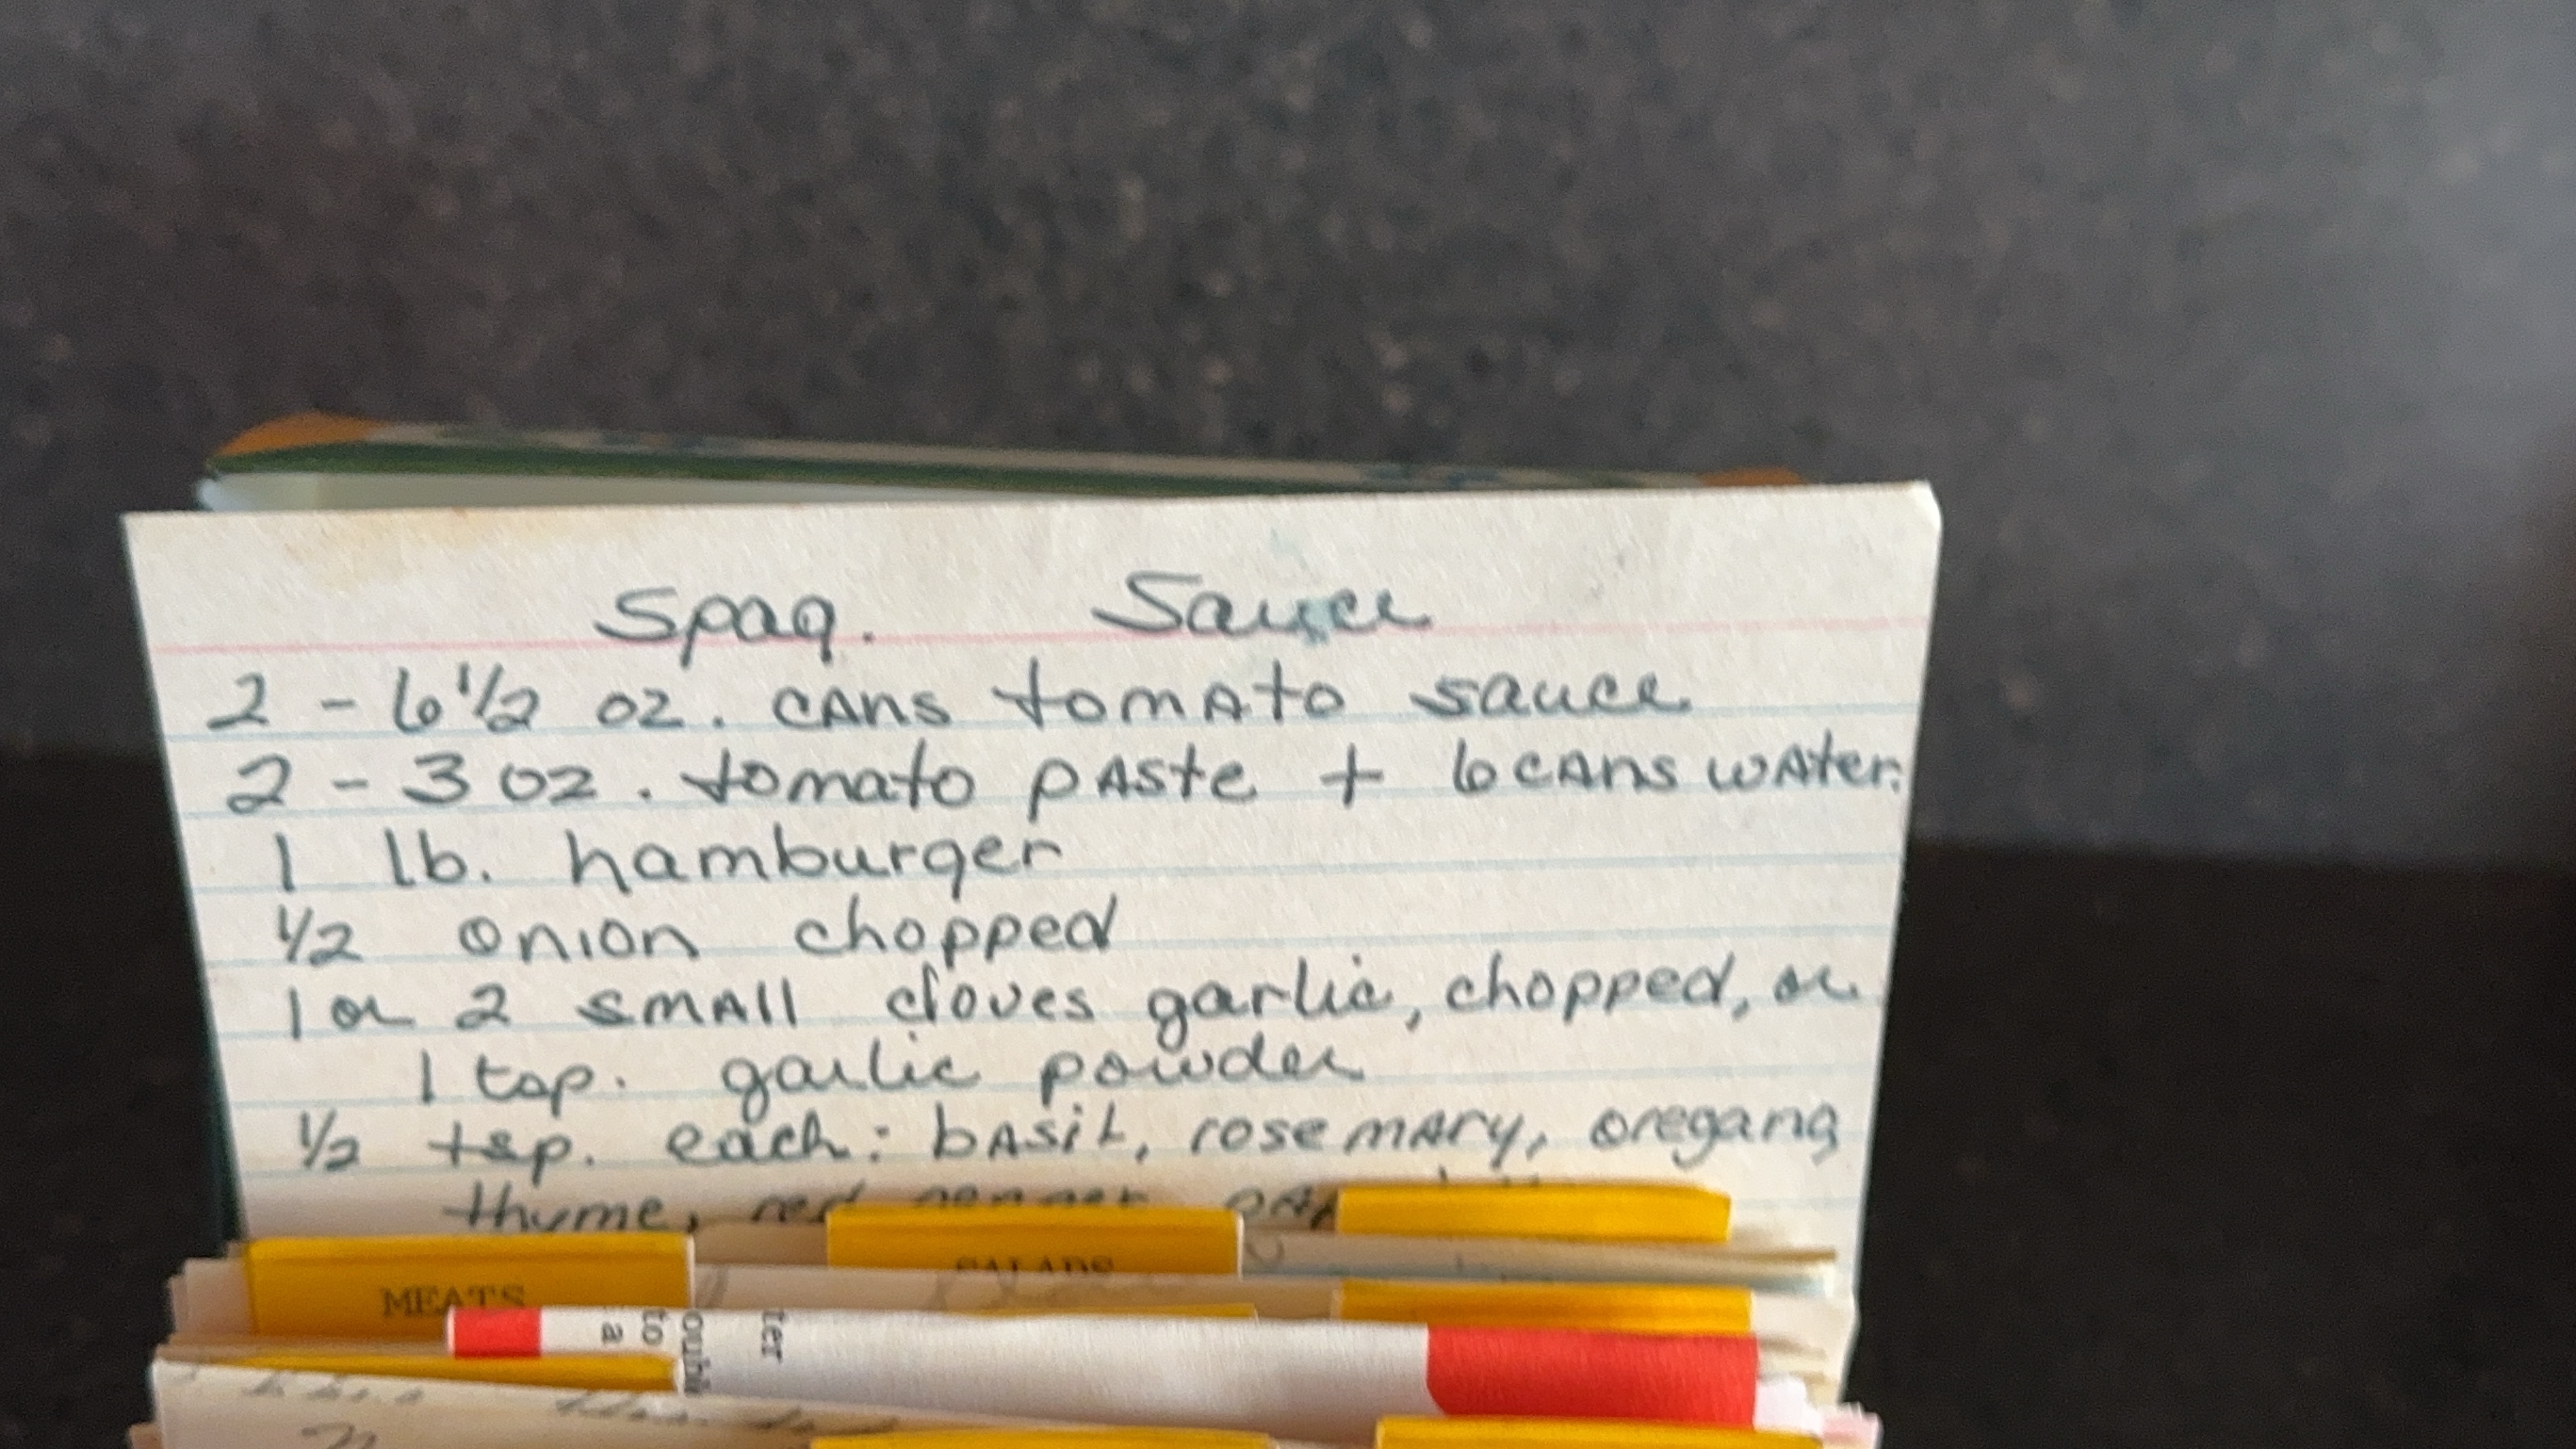 Spag. Sauce
2 - 6 1/2 oz. cans tomato sauce
2 - 3 oz. tomato paste + 6 cans water.
1 lb. hamburger
1/2 onion chopped
1 or 2 small cloves garlic, chopped, or
1 tsp. garlic powder
1/2 tsp. each: basil, rosemary, oregano
thyme, red pepper
SALADS
MEATS
ter
to
a